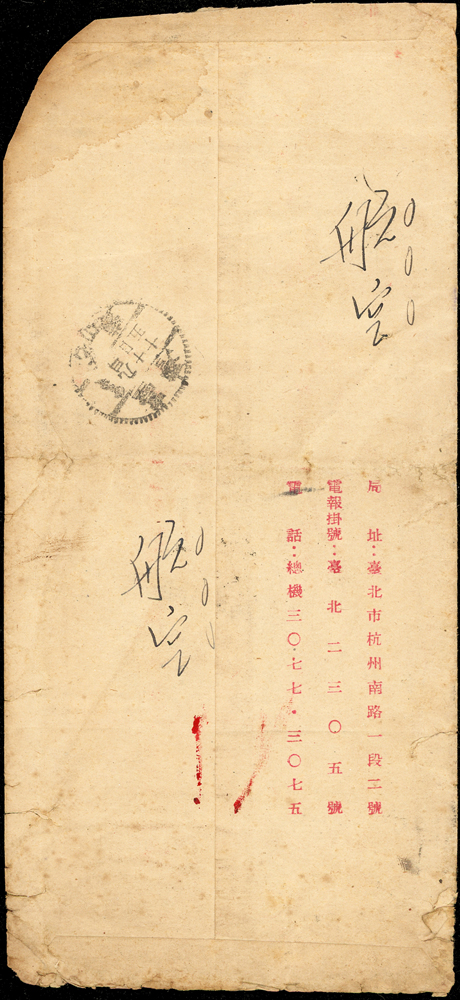 航空
局　址：臺北市杭州南路一段二號
電報掛號：臺北二三〇五號
電　話：總機三〇七七・三〇七五
航空